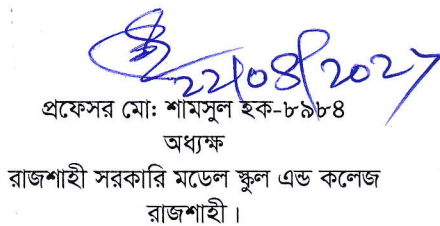 22/08/2027
প্রফেসর মো: শামসুল হক-৮৯৮৪
অধ্যক্ষ
রাজশাহী সরকারি মডেল স্কুল এন্ড কলেজ
রাজশাহী।